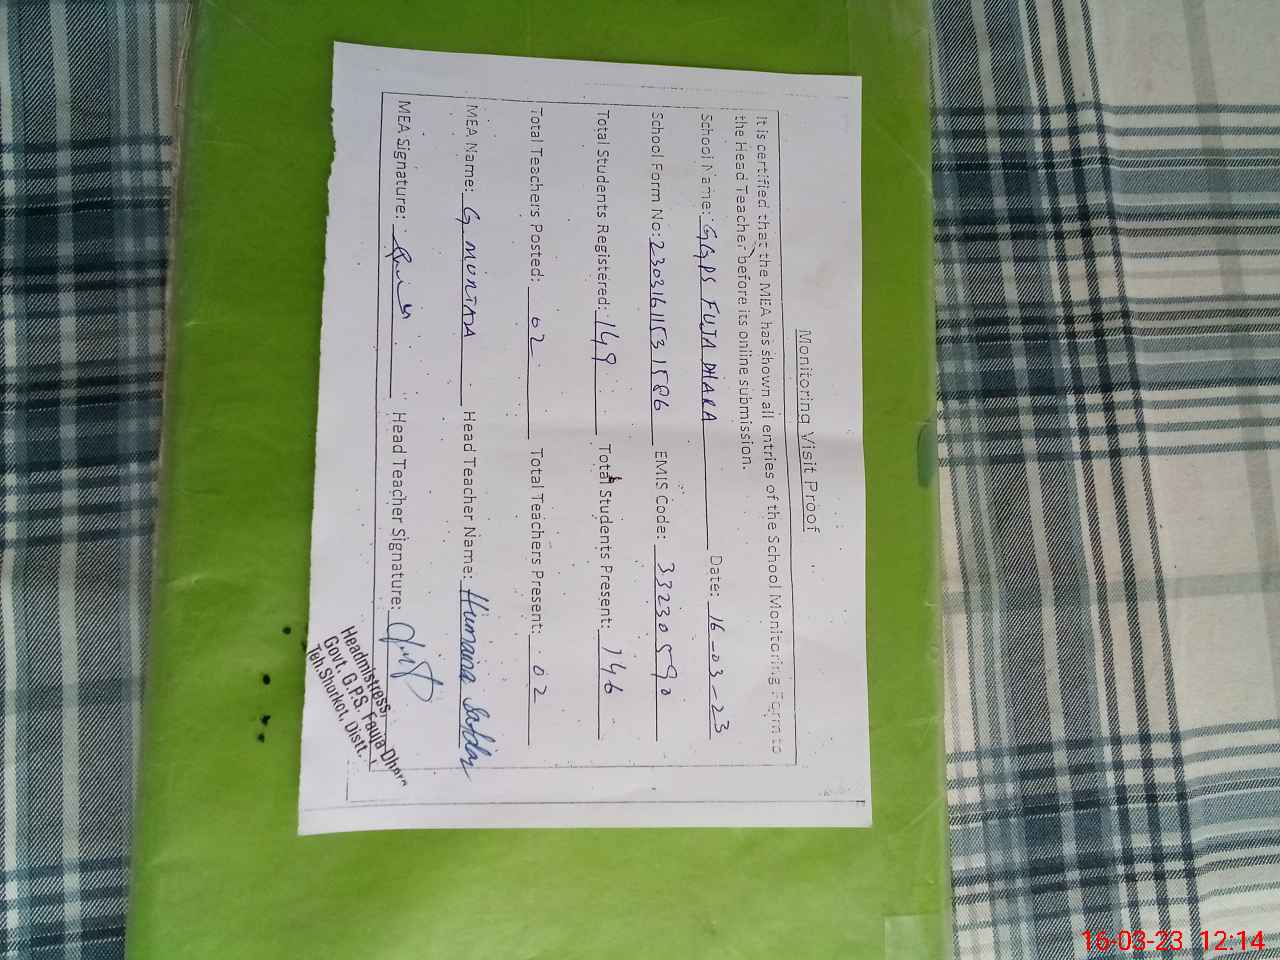 Monitoring Visit Proof
It is certified that the MEA has shown all entries of the School Monitoring Form to
the Head Teacher before its online submission.
School Name: GGPS FUJA DHARA Date: 16-03-23
School Form No: 23031611531586 EMIS Code: 33230590
Total Students Registered: 149 Total Students Present: 146
Total Teachers Posted: 02 Total Teachers Present: 02
MEA Name: G MURTAZA Head Teacher Name: Humaira Safdar
MEA Signature: Head Teacher Signature:
Headmistress,
Govt. G.P.S. Fauja Dhara
Teh.Shorkot, Distt.
16-03-23 12:14